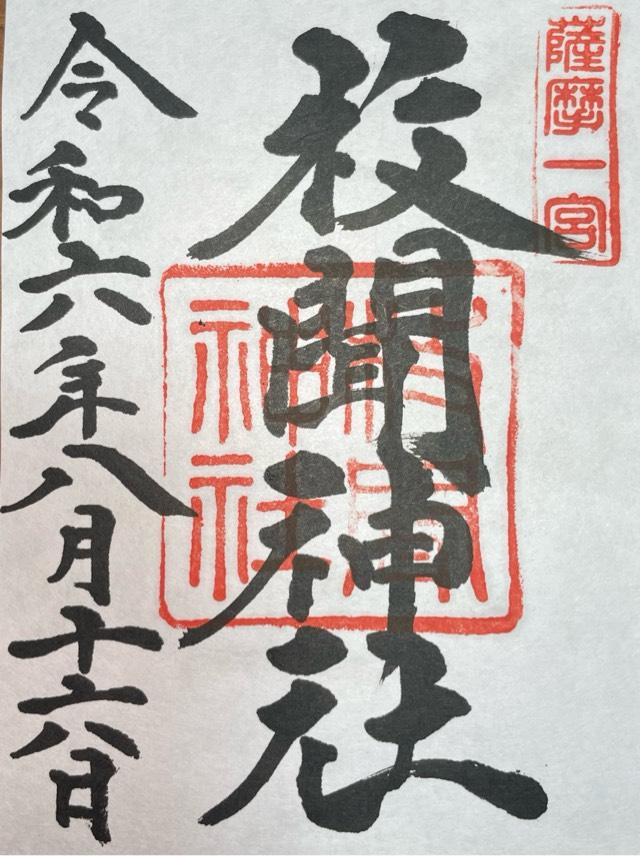 薩摩一宮
枚聞神社
令和六年八月十六日